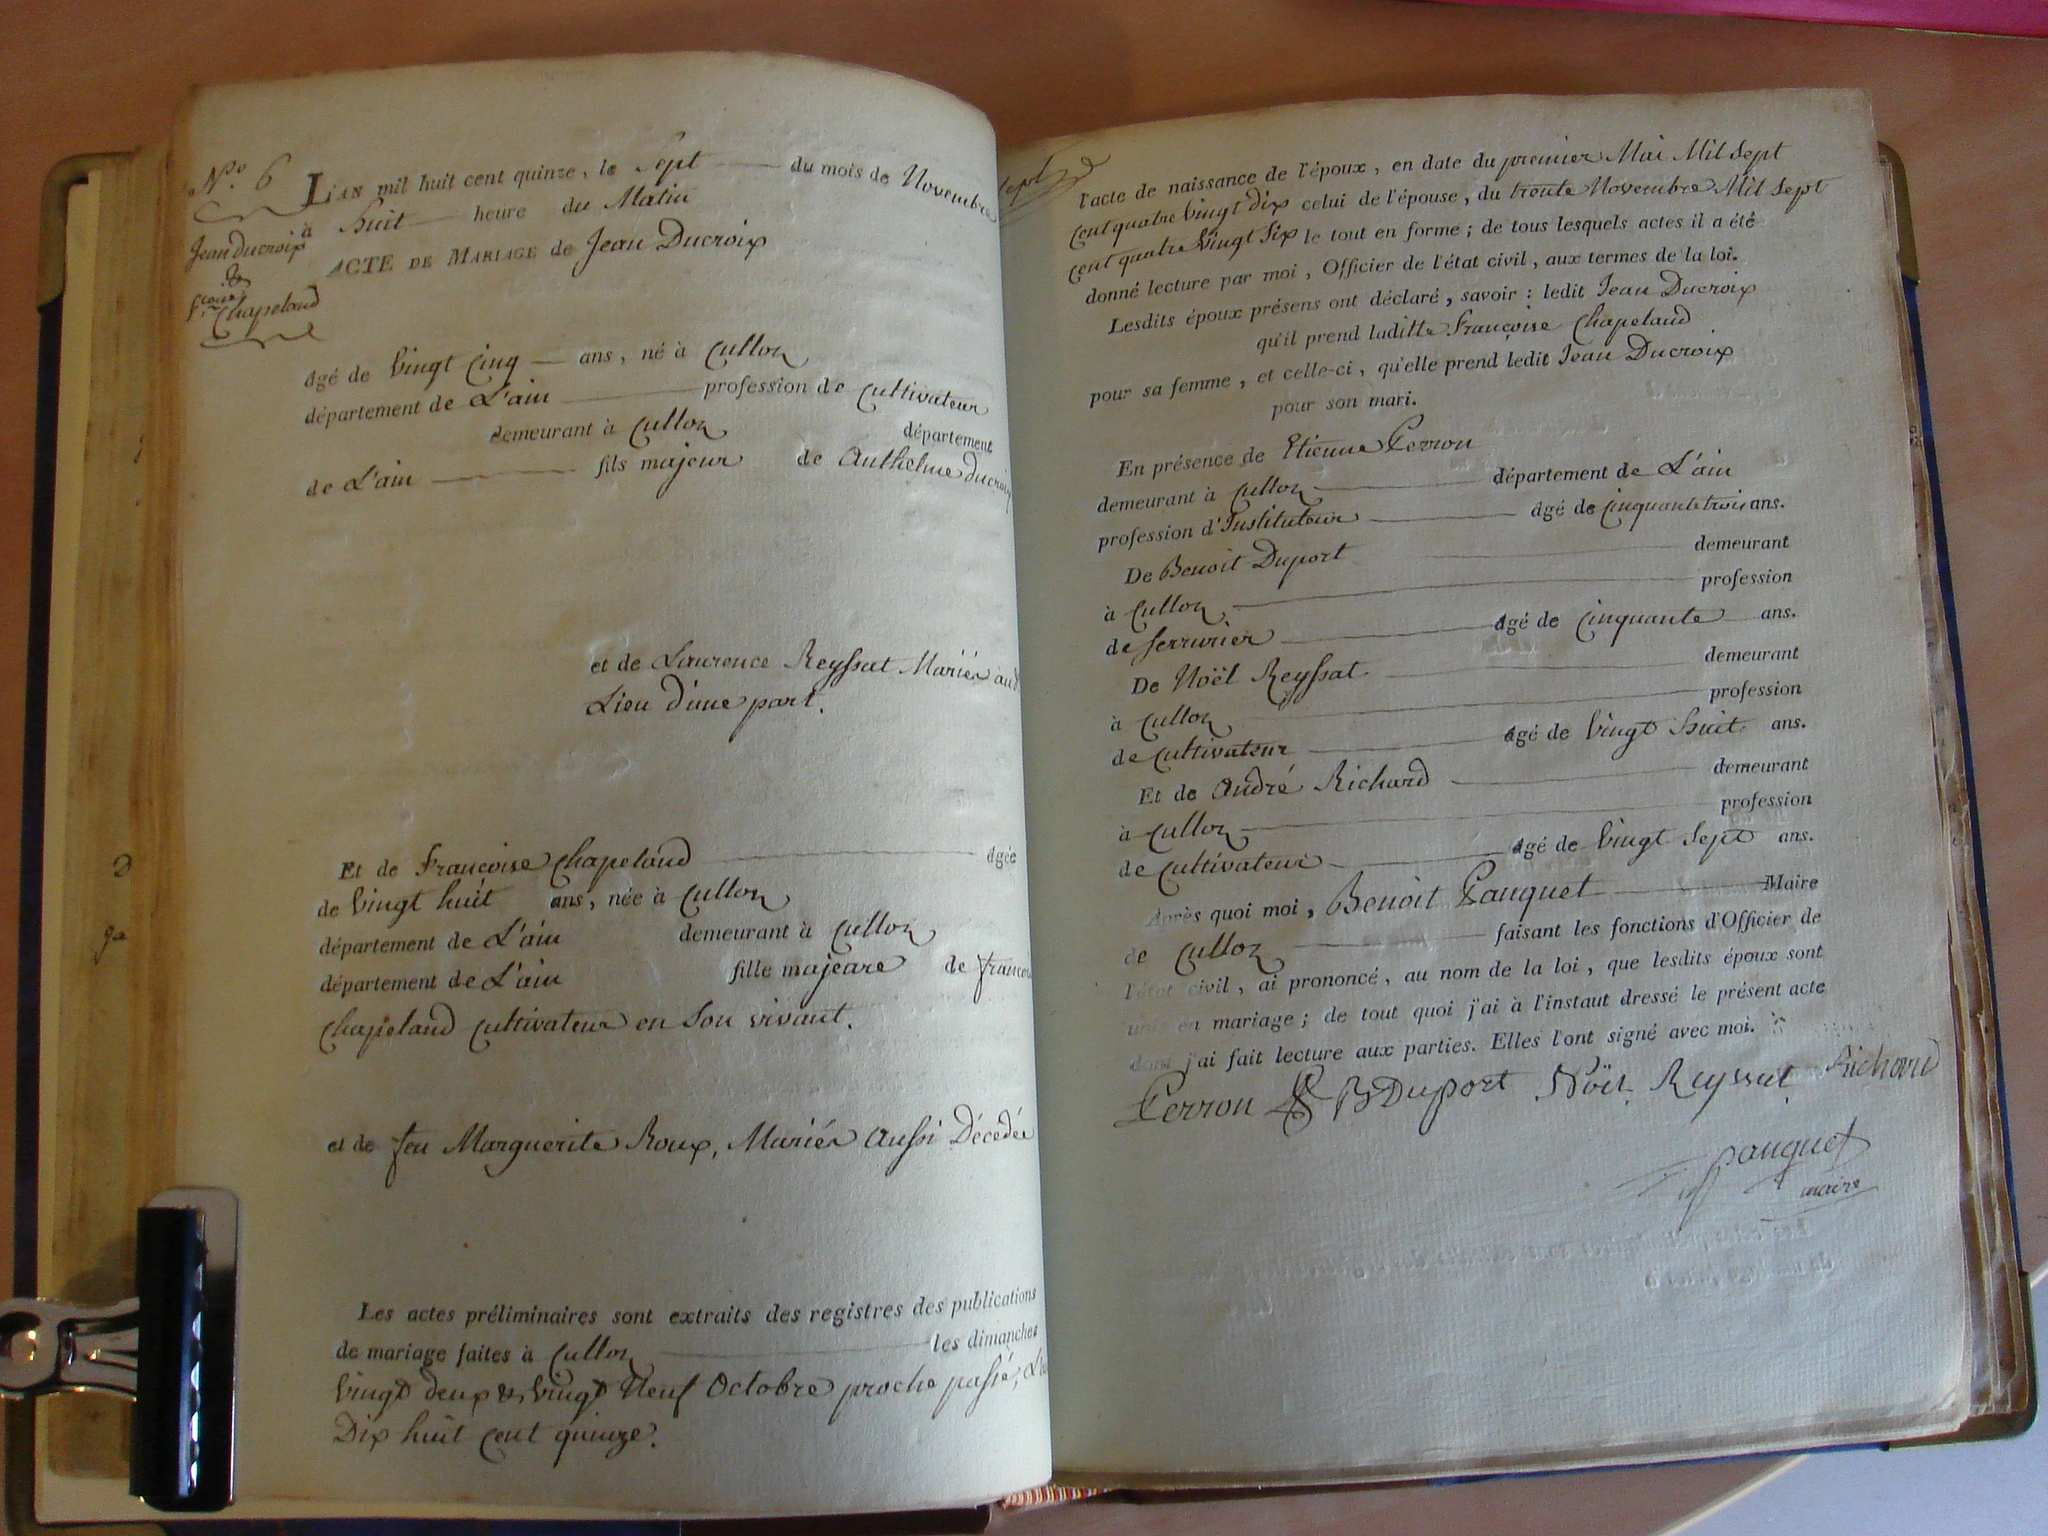 N.o 6
Jean Ducroix
&
Chapeland
L'an mil huit cent quinze, le Sept du mois de Novembre
à huit heure du Matin
ACTE DE MARIAGE de Jean Ducroix
âgé de Vingt Cinq ans, né à Culloz
département de L'ain profession de Cultivateur
demeurant à Culloz département
de L'ain fils majeur de Anthelme Ducroix
et de Laurence Reyssat Mariés
Lieu d'une part.
Et de Françoise Chapeland âgée
de Vingt huit ans, née à Culloz
département de L'ain demeurant à Culloz
département de L'ain fille majeure de
Chapeland Cultivateur en Son vivant.
et de feu Marguerite Roux, Mariés Aussi Décédée
Les actes préliminaires sont extraits des registres des publications
de mariage faites à Culloz les dimanches
Vingt deux & Vingt Neuf Octobre proche passé,
Dix huit Cent quinze.
l'acte de naissance de l'époux, en date du premier Mai Mil Sept
Cent quatre Vingt Dix celui de l'épouse, du trente Novembre Mil Sept
Cent quatre Vingt Six le tout en forme; de tous lesquels actes il a été
donné lecture par moi, Officier de l'état civil, aux termes de la loi.
Lesdits époux présens ont déclaré, savoir: ledit Jean Ducroix
qu'il prend laditte Françoise Chapeland
pour sa femme, et celle-ci, qu'elle prend ledit Jean Ducroix
pour son mari.
En présence de Etienne Perron
demeurant à Culloz département de L'ain
profession d'Instituteur âgé de Cinquante trois ans.
De Benoit Duport demeurant
à Culloz profession
de Serrurier âgé de Cinquante ans.
De Noël Reyssat demeurant
à Culloz profession
de Cultivateur âgé de Vingt huit ans.
Et de André Richard demeurant
à Culloz profession
de Cultivateur âgé de Vingt Sept ans.
Après quoi moi, Benoit Pauquet Maire
de Culloz faisant les fonctions d'Officier de
l'état civil, ai prononcé, au nom de la loi, que lesdits époux sont
unis en mariage; de tout quoi j'ai à l'instaut dressé le présent acte
dont j'ai fait lecture aux parties. Elles l'ont signé avec moi.
Perron B Duport Noël Reyssat Richard
Pauquet
maire